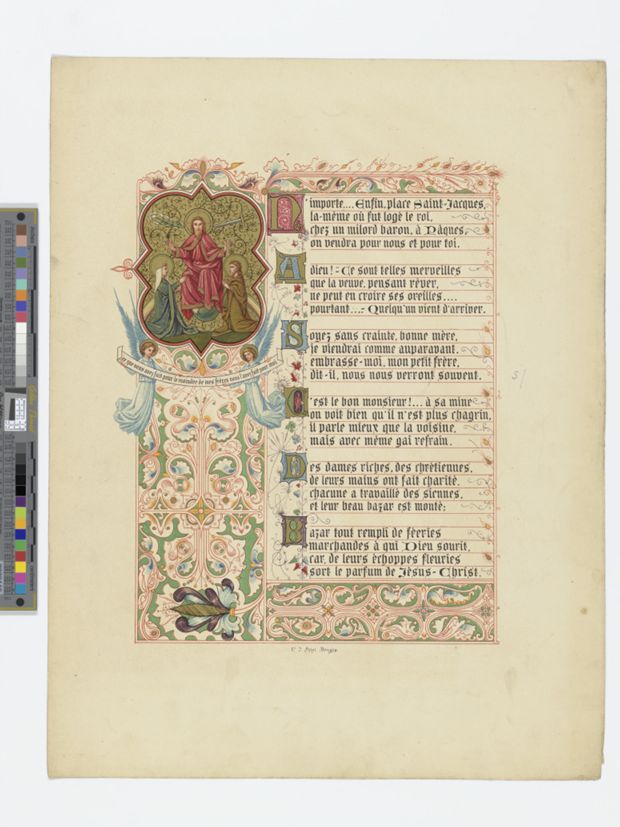 N'importe.... Enfin, place Saint-Jacques,
là-même où fut logé le roi,
chez un milord baron, à Pâques,
on vendra pour nous et pour toi.
Adieu! - Ce sont telles merveilles
que la veuve, pensant rêver,
ne peut en croire ses oreilles....
pourtant...- Quelqu'un vient d'arriver.
Soyez sans crainte, bonne mère,
je viendrai comme auparavant.
embrasse-moi, mon petit frère,
dit-il, nous nous verrons souvent.
C'est le bon monsieur!... à sa mine
on voit bien qu'il n'est plus chagrin,
il parle mieux que la voisine,
mais avec même gai refrain.
Des dames riches, des chrétiennes,
de leurs mains ont fait charité.
chacune a travaillé des siennes,
et leur beau bazar est monté;
Bazar tout rempli de féeries
marchandes à qui Dieu sourit,
car, de leurs échoppes fleuries
sort le parfum de Jésus-Christ.
ce que vous avez fait pour le moindre de mes frères vous l'avez fait pour moi